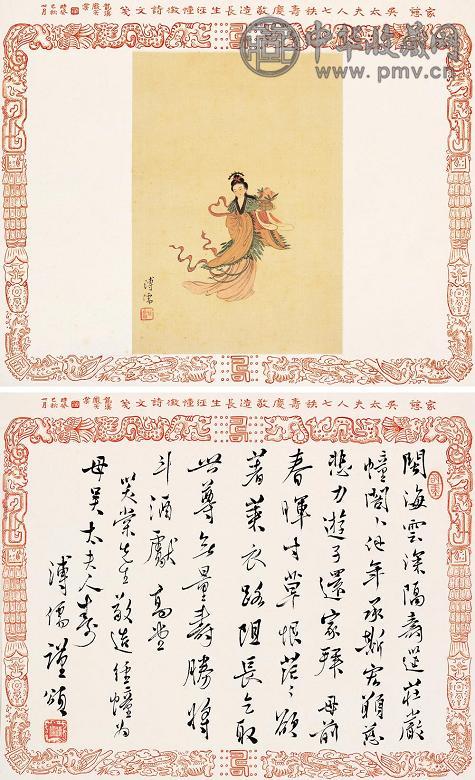 家慈吳太夫人七秩壽慶敬造長生經幢徵詩文箋
中华收藏网
www.pmv.cn
溥儒
家慈吳太夫人七秩壽慶敬造長生經幢徵詩文箋
閩海雲深隔壽筵莊嚴
幢閣卜何年承斯宏願慈
悲力遊子還家拜母前
春暉寸草恨茫〻欲
著萊衣路阻長乞取
世尊無量壽勝將
斗酒獻高堂
笑棠先生敬造經幢為
母吳太夫人壽
溥儒謹頌